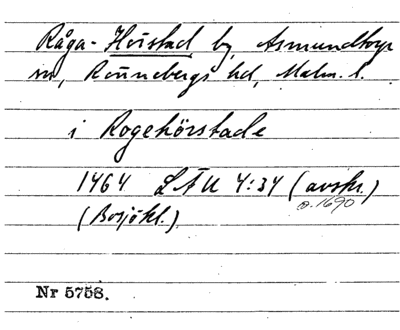 Råga-Hörstad by, Asmundtorps
sn, Rönnebergs hd, Malm. l.
i Rogehörstade
1464 LÄU 4:34 (avskr.)
(Bosjökl.) o. 1690
Nr 5758.